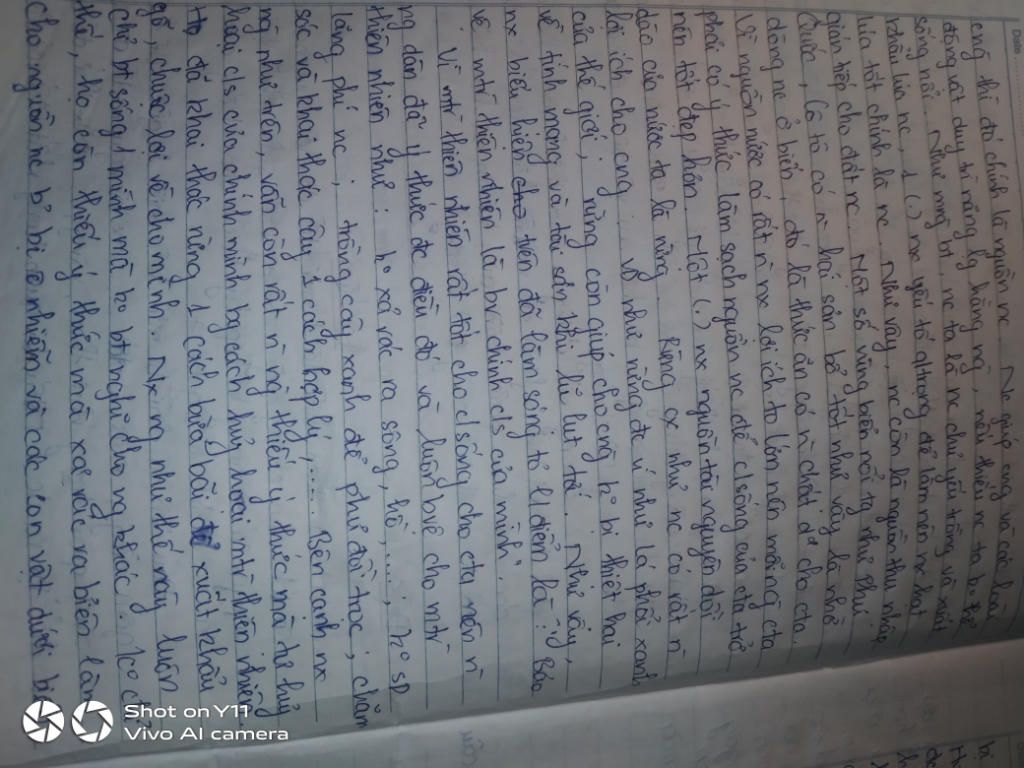 Date
thì đó chính là nguồn nc. Nc giúp cng và các loài
động vật duy trì hằng ng, nếu thiếu nc ta ko thể
sống nổi. Như mng bt, nc ta là nc chủ yếu trồng và xuất
khẩu lúa nc, 1 (.) nx yếu tố qtrong để làm nên nx hạt
lúa tốt chính là nc. Như vậy, nc còn là nguồn thu nhập
gián tiếp cho đất nc. Một số vùng biển nổi tg như Phú
Quốc, Cô tô có n hải sản bổ tốt như vậy là nhờ
dòng nc ở biển, đó là thức ăn có n chất d² cho cta.
Vì nguồn nước có rất n nx lợi ích to lớn nên mỗi ng cta
phải có ý thức làm sạch nguồn nc để c/sống của cta trở
nên tốt đẹp hơn. Một (.) nx nguồn tài nguyên dồi
dào của nước ta là rừng. Rừng cx như nc có rất n
lợi ích cho cng. Ví như rừng đc ví như lá phổi xanh
của thế giới, rừng còn giúp cho cng ko bị thiệt hại
về tính mạng và tài sản khi lũ lụt tới. Như vậy,
nx biểu hiện trên đã làm sáng tỏ l/điểm là: "Bảo
vệ mtr thiên nhiên là bv chính c/s của mình".
Vì mtr thiên nhiên rất tốt cho c/sống cho cta nên n
ng dân đã ý thức đc điều đó và luôn bvệ cho mtr
thiên nhiên như: ko xả rác ra sông, hồ,....; ko sd
lãng phí nc; trồng cây xanh để phủ đồi trọc; chăm
sóc và khai thác cây 1 cách hợp lý;..... Bên cạnh nx
ng như trên, vẫn còn rất n ng thiếu ý thức mà tự hủy
hoại c/s của chính mình bg cách huỷ hoại mtr thiên nhiên
Họ đã khai thác rừng 1 cách bừa bãi để xuất khẩu
gỗ, chuộc lợi về cho mình. Nx ng như thế này luôn
chỉ bt sống 1 mình mà ko bt nghĩ cho ng khác. Ko c
thế, họ còn thiếu ý thức mà xả rác ra biển làm
cho nguồn nc bị ô nhiễm và các con vật dưới biển
Shot on Y11
Vivo AI camera